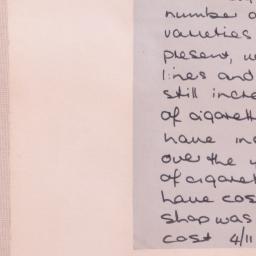 number o
varieties
present, w
lines and
still incre
of cigarett
have in
over the
of cigaret
have cos
shop was
cost 4/11